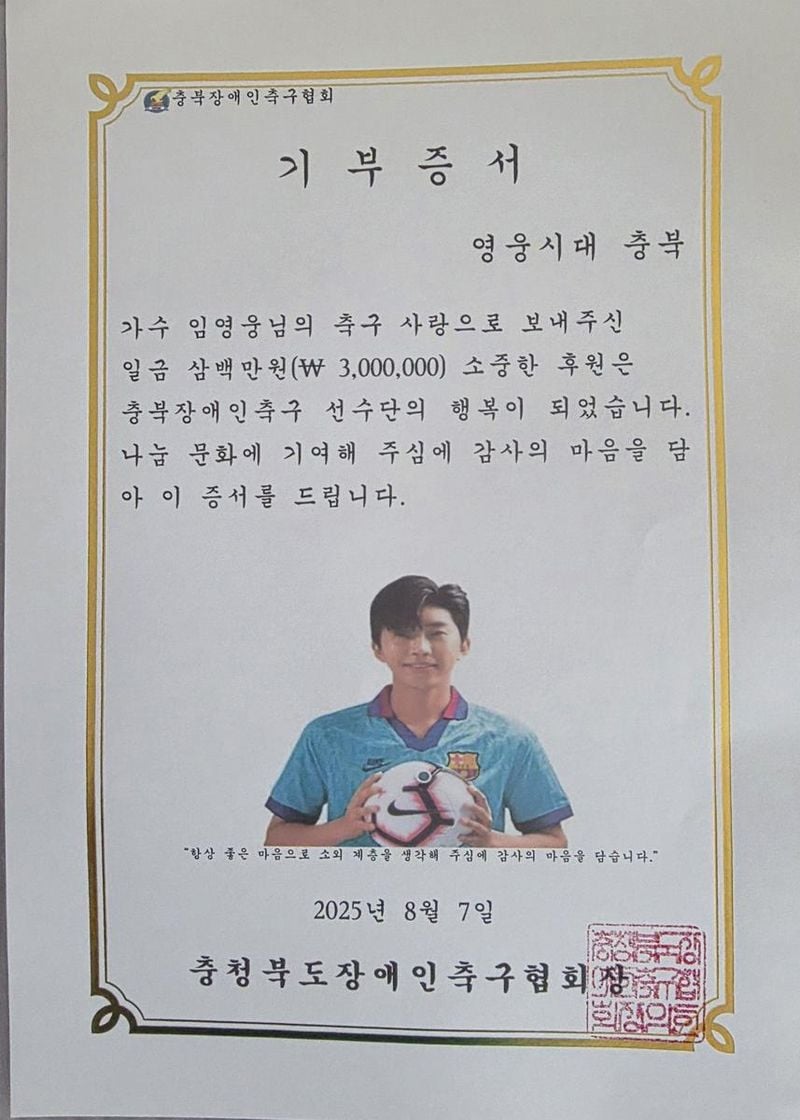 충북장애인축구협회
기 부 증 서
영웅시대 충북
가수 임영웅님의 축구 사랑으로 보내주신
일금 삼백만원(₩ 3,000,000) 소중한 후원은
충북장애인축구 선수단의 행복이 되었습니다.
나눔 문화에 기여해 주심에 감사의 마음을 담
아 이 증서를 드립니다.
"항상 좋은 마음으로 소외 계층을 생각해 주심에 감사의 마음을 담습니다."
2025년 8월 7일
충청북도장애인축구협회장